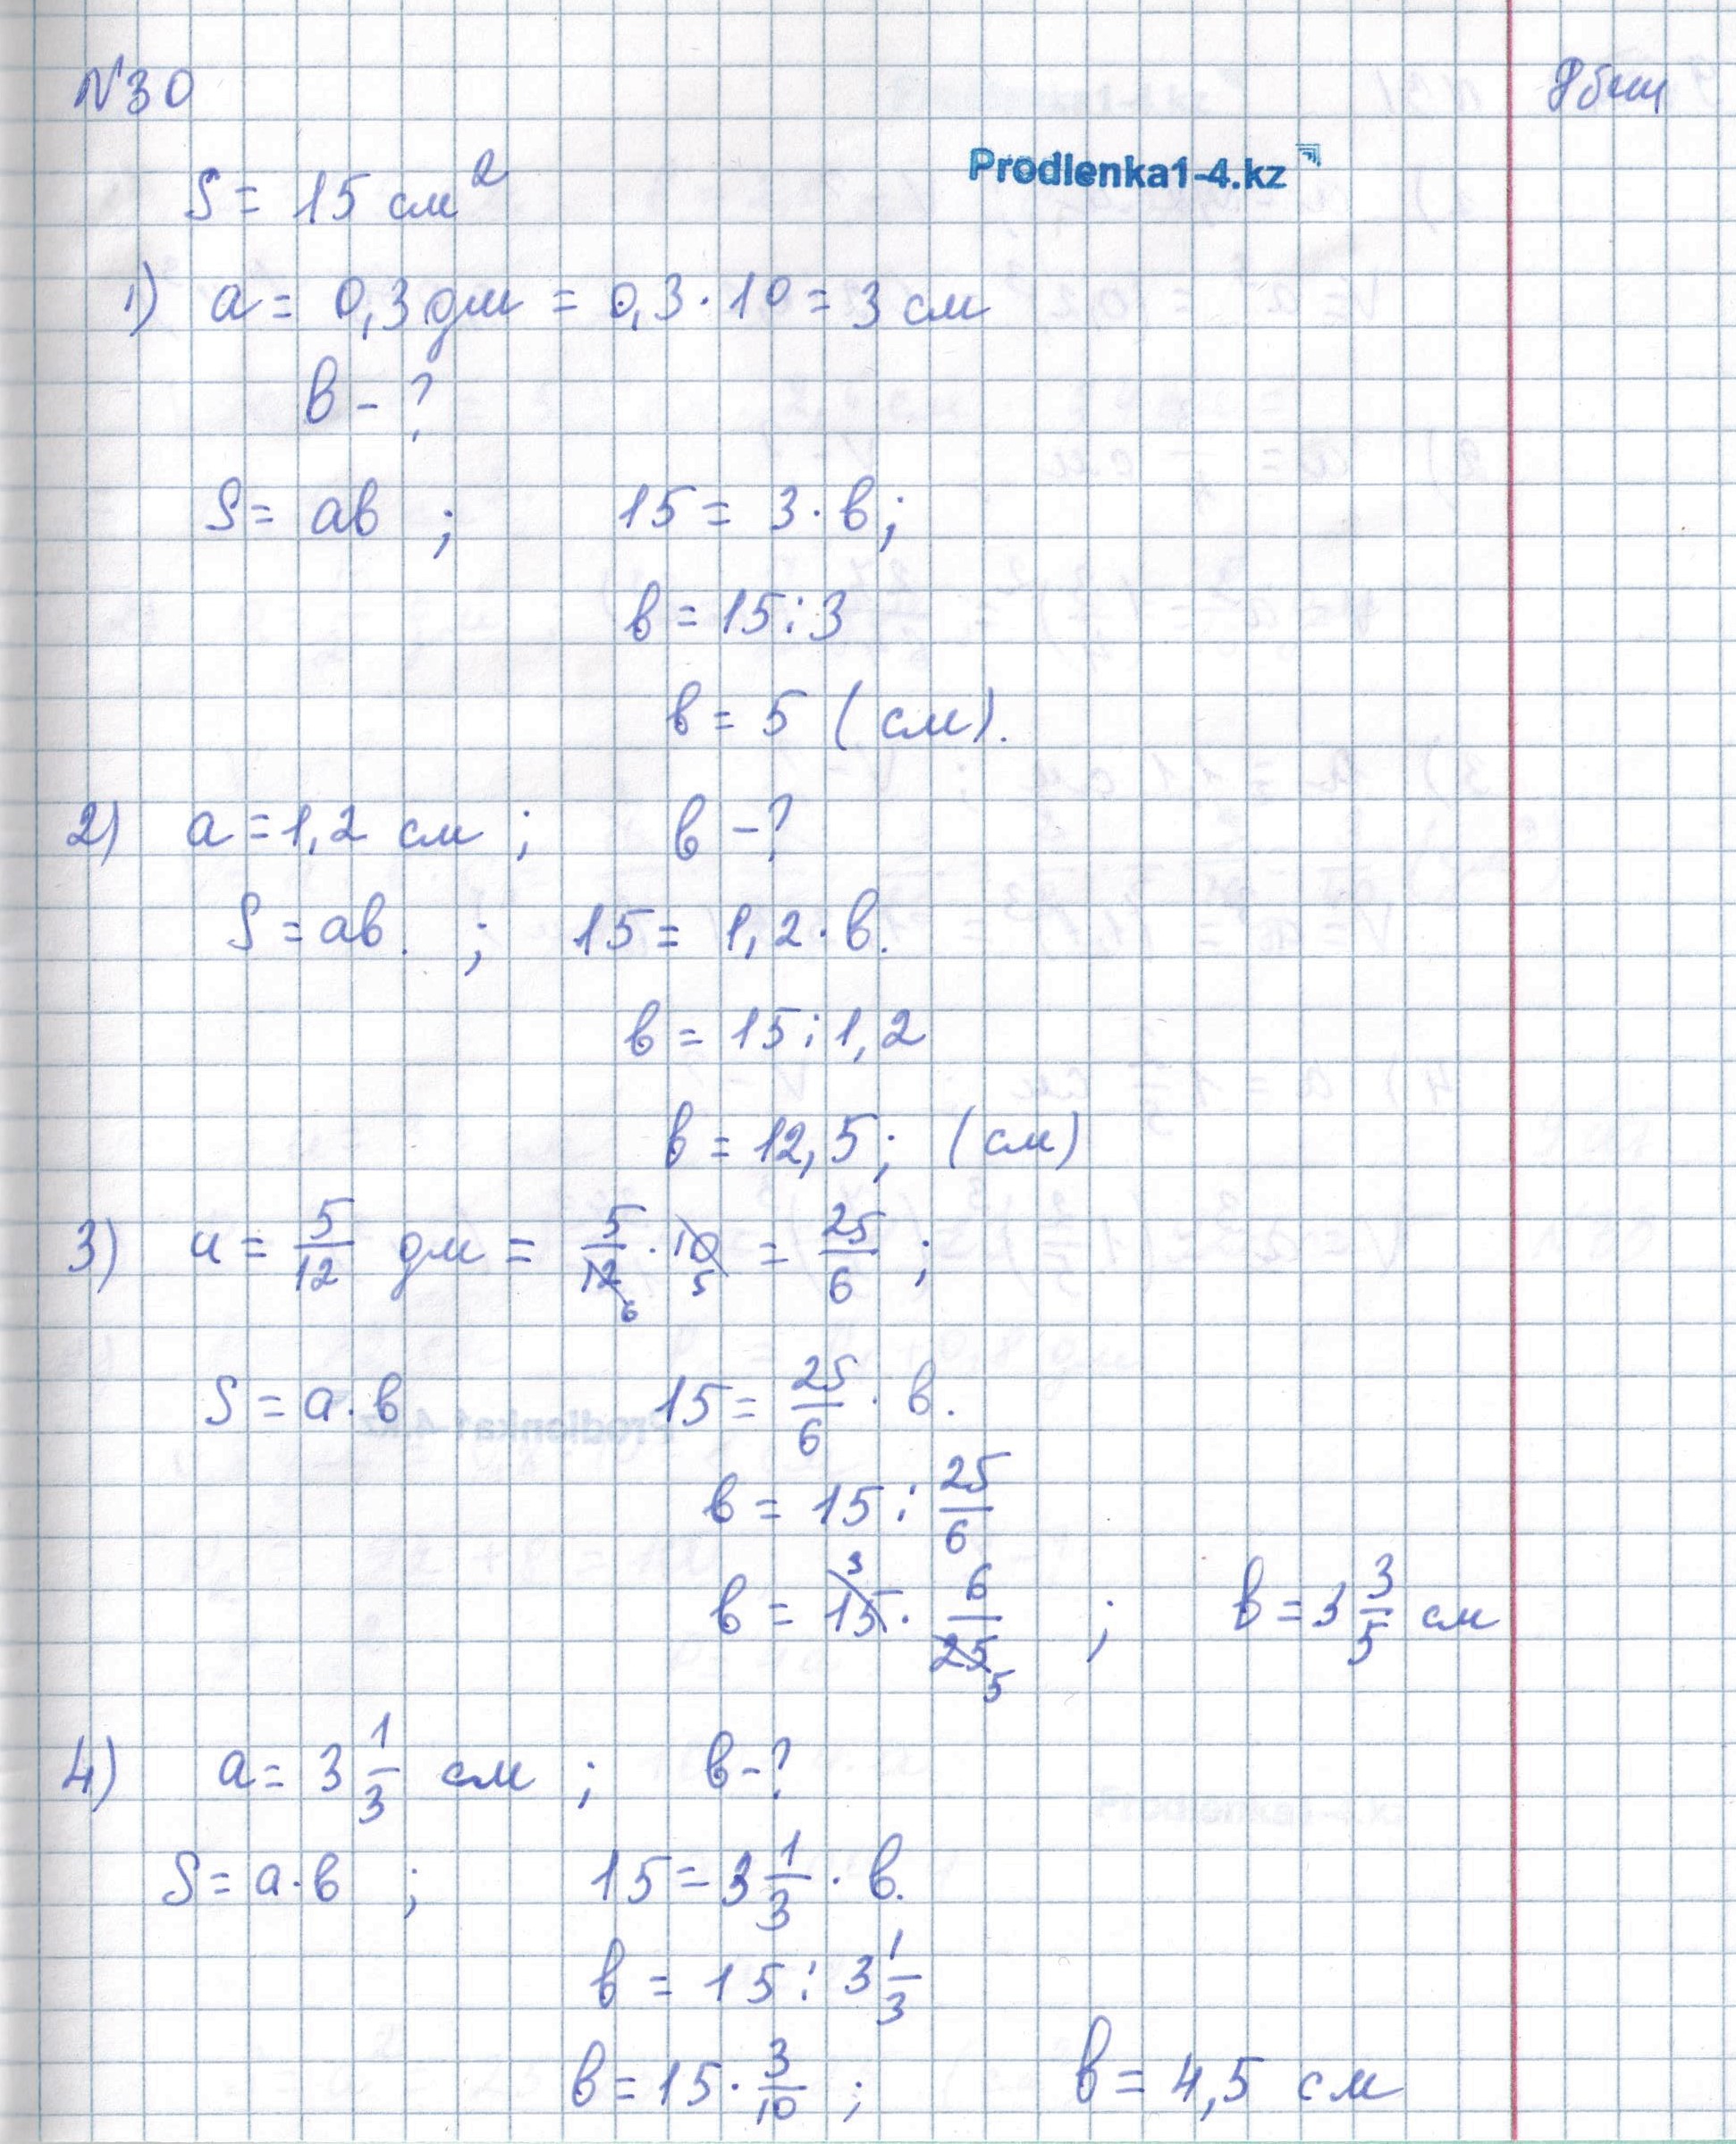 N30
Prodlenka1-4.kz
S = 15 см²
1) a = 0,3 дм = 0,3 · 10 = 3 см
в - ?
S = aв ; 15 = 3 · в;
в = 15 : 3
в = 5 (см).
2) a = 1,2 см ; в - ?
S = aв. ; 15 = 1,2 · в.
в = 15 : 1,2
в = 12,5; (см)
3) a = 5/12 дм = 5/12 6 · 10 5 = 25/6 ;
S = a · в 15 = 25/6 · в.
в = 15 : 25/6
в = 15 3 · 6/25 5 ; в = 3 3/5 см
4) a = 3 1/3 см ; в - ?
S = a · в ; 15 = 3 1/3 · в.
в = 15 : 3 1/3
в = 15 · 3/10 ; в = 4,5 см